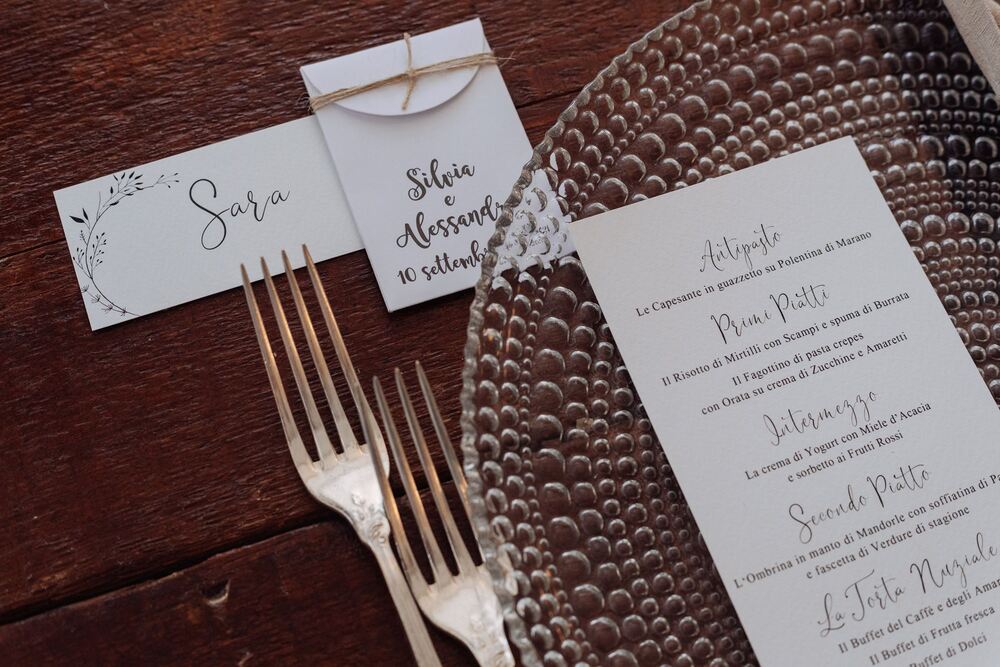 Sara
Silvia
e
10
Antipasto
Le Capesante in guazzetto su Polentina di Marano
Primi Piatti
Il Risotto di Mirtilli con Scampi e spuma di Burrata
Il Fagottino di pasta crepes
con Orata su crema di Zucchine e Amaretti
Intermezzo
La crema di Yogurt con Miele d'Acacia
e sorbetto ai Frutti Rossi
Secondo Piatto
L'Ombrina in manto di Mandorle con soffiatina di
e fascetta di Verdure di stagione
La Torta Nuziale
Il Buffet del Caffè e degli
Il Buffet di Frutta fresca
Buffet di Dolci